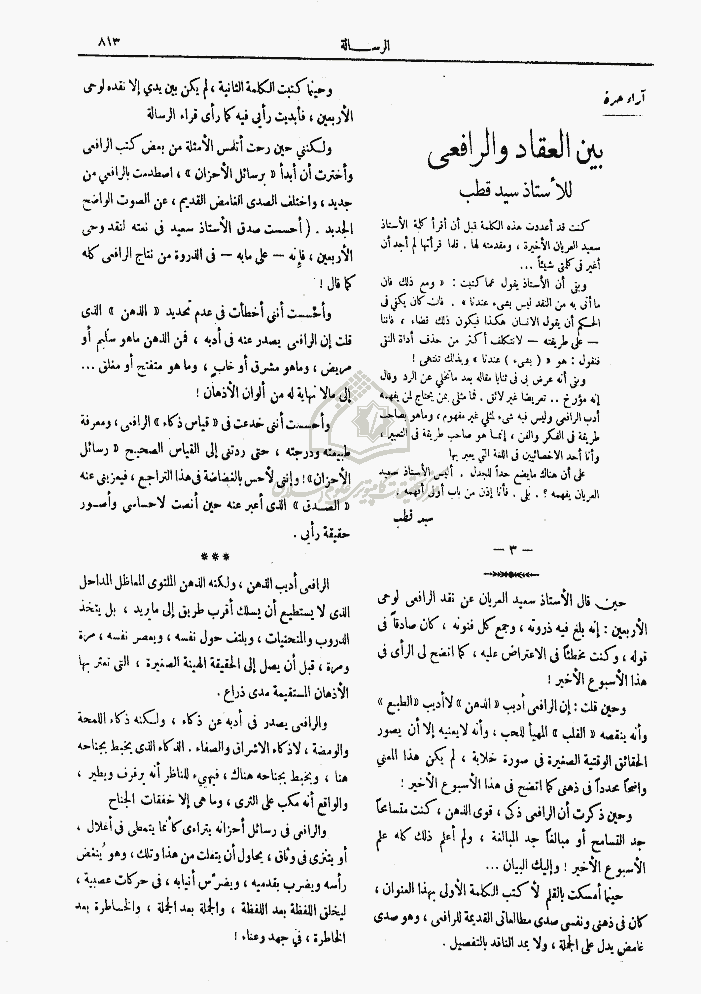 الرسالة
٨١٣
آراء حرة
بين العقاد والرافعى
للأستاذ سيد قطب
كنت قد أعددت هذه الكلمة قبل أن أقرأ كلمة الأستاذ
سعيد العريان الأخيرة ، ومقدمته لها . فلما قرأتها لم أجد أن
أغير فى كلمتى شيئاً ...
وبقى أن الأستاذ يقول عما كتبت : « ومع ذلك فان
ما أتى به من النقد ليس بشىء عندنا » . فان كان يكفى فى
الحكم أن يقول الانسان هكذا فيكون ذلك قضاء ، فاننا
— على طريقته — لانتكلف أكثر من حذف أداة النفى
فنقول : هو « ( بشىء ) عندنا » وبذلك ننتهى !
وبقى أنه عرض بى فى ثنايا مقاله بعد ماتخلى عن الرد وقال
إنه مؤرخ .. تعريضاً غير لائق . فما مثلى بمن يحتاج لمن يفهمه
أدب الرافعى وليس فيه شىء لمثلى غير مفهوم ، وماهو بصاحب
طريقة فى الفكر والفن ، إنمـا هو صاحب طريقة فى التعبير ،
وأنا أحد الاخصائيين فى اللغة التى يعبر بها
على أن هناك مايضع حداً للجدل . أليس الأستاذ سعيد
العريان يفهمه ؟ . بلى . فأنا إذن من باب أولى أفهمه .
سيد قطب
— ٣ —
حين قال الأستاذ سعيد العريان عن نقد الرافعى لوحى
الأربعين : إنه بلغ فيه ذروته ، وجمع كل فنونه ، كان صادقاً فى
قوله ، وكنت مخطئاً فى الاعتراض عليه ، كما اتضح لى الرأى فى
هذا الأسبوع الأخير !
وحين قلت : إن الرافعى أديب « الذهن » لاأديب « الطبع »
وأنه ينقصه « القلب » المهيأ للحب ، وأنه لايعنيه إلا أن يصور
الحقائق الوقتية الصغيرة فى صورة خلابة ، لم يكن هذا المعنى
واضحاً محدداً فى ذهنى كما اتضح فى هذا الأسبوع الأخير !
وحين ذكرت أن الرافعى ذكى ، قوى الذهن ، كنت متسامحاً
جد التسامح أو مبالغاً جد المبالغة ، ولم أعلم ذلك كله علم
الأسبوع الأخير ! وإليك البيان ...
حينما أمسكت بالقلم لأكتب الكلمة الأولى بهذا العنوان ،
كان فى ذهنى ونفسى صدى مطالعاتى القديمة للرافعى ، وهو صدى
غامض يدل على الجملة ، ولا يمد الناقد بالتفصيل .
وحينما كتبت الكلمة الثانية ، لم يكن بين يدي إلا نقده لوحى
الأربعين ، فأبديت رأيى فيه كما رأى قراء الرسالة
ولكننى حين رحت أتلمس الأمثلة من بعض كتب الرافعى
وأخترت أن أبدأ « برسائل الأحزان » ، اصطدمت بالرافعى من
جديد ، واختلف الصدى الغامض القديم ، عن الصوت الواضح
الجديد . ( أحسست صدق الأستاذ سعيد فى نعته لنقد وحى
الأربعين ، فإنه — على مابه — فى الذروة من نتاج الرافعى كله
كما قال !
وأحسست أننى أخطأت فى عدم تحديد « الذهن » الذى
قلت إن الرافعى يصدر عنه فى أدبه ، فمن الذهن ماهو سليم أو
مريض ، وماهو مشرق أو خاب ، وما هو متفتح أو مغلق ...
إلى مالا نهاية له من ألوان الأذهان !
وأحسست أننى خدعت فى « قياس ذكاء » الرافعى ، ومعرفة
طبيعته ودرجته ، حتى ردتنى إلى القياس الصحيح « رسائل
الأحزان » ! وإننى لأحس بالغضاضة فى هذا التراجع ، فيعزينى عنه
« الصدق » الذى أعبر عنه حين أنصت لاحساسى وأصور
حقيقة رأيى .
***
الرافعى أديب الذهن ، ولكنه الذهن الملتوى المعاظل المداحل
الذى لا يستطيع أن يسلك أقرب طريق إلى مايريد ، بل يتخذ
الدروب والمنحنيات ، ويلتف حول نفسه ، ويعصر نفسه ، مرة
ومرة ، قبل أن يصل إلى الحقيقة الهينة الصغيرة ، التى تعتر بها
الأذهان المستقيمة مدى ذراع .
والرافعى يصدر فى أدبه عن ذكاء ، ولكنه ذكاء اللمحة
والومضة ، لاذكاء الاشراق والصفاء . الذكاء الذى يخبط بجناحه
هنا ، ويخبط بجناحه هناك ، فيهيء للناظر أنه يرفرف ويطير ،
والواقع أنه مكب على الثرى ، وما هى إلا خفقات الجناح
والرافعى فى رسائل أحزانه يتراءى كأنما يتمطى فى أغلال ،
أو يتنزى فى وثاق ، يحاول أن يتفلت من هذا وتلك ، وهو يُنغض
رأسه ويضرب بقدميه ، ويضرّس أنيابه ، فى حركات عصبية ،
ليخلق اللفظة بعد اللفظة ، والجملة بعد الجملة ، والخاطرة بعد
الخاطرة ، في جهد وعناء !